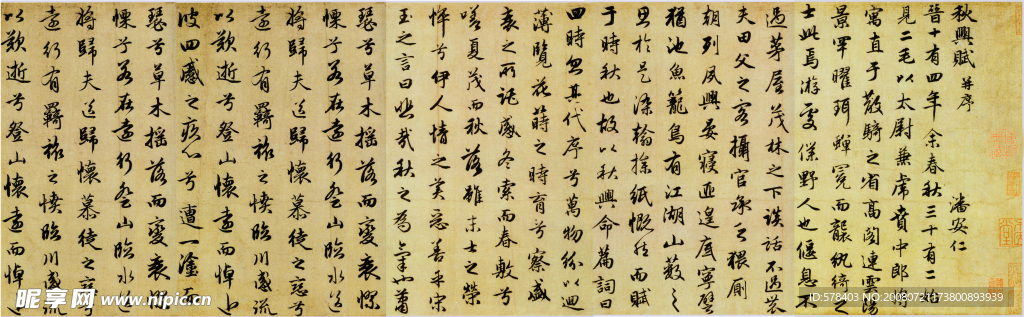 秋興賦 并序
潘安仁
晉十有四年余春秋三十有二始
見二毛以太尉兼虎賁中郎將
寓直于散騎之省高閣連雲陽
景罕曜珥蟬冕而襲紈綺之
士此焉游處僕野人也偃息不
過茅屋茂林之下談話不過農
夫田父之客攝官承乏猥廁
朝列夙興晏寢匪遑底寧譬
猶池魚籠鳥有江湖山藪之
思於是染翰操紙慨然而賦
于時秋也故以秋興命篇詞曰
四時忽其代序兮萬物紛以迴
薄覽花蒔之時育兮察盛
衰之所託感冬索而春敷兮
嗟夏茂而秋落雖末士之榮
悴兮伊人情之美惡善乎宋
玉之言曰悲哉秋之為氣也蕭
瑟兮草木搖落而變衰憭
慄兮若在遠行登山臨水送
將歸夫送歸懷慕徒之戀兮
遠行有羈旅之憤臨川感流
以歎逝兮登山懷遠而悼近
彼四慼之疚心兮遭一塗而
瑟兮草木搖落而變衰憭
慄兮若在遠行登山臨水送
將歸夫送歸懷慕徒之戀兮
遠行有羈旅之憤臨川感流
以歎逝兮登山懷遠而悼近
昵享网 www.nipic.cn
ID:578403 NO:20080721173800893939